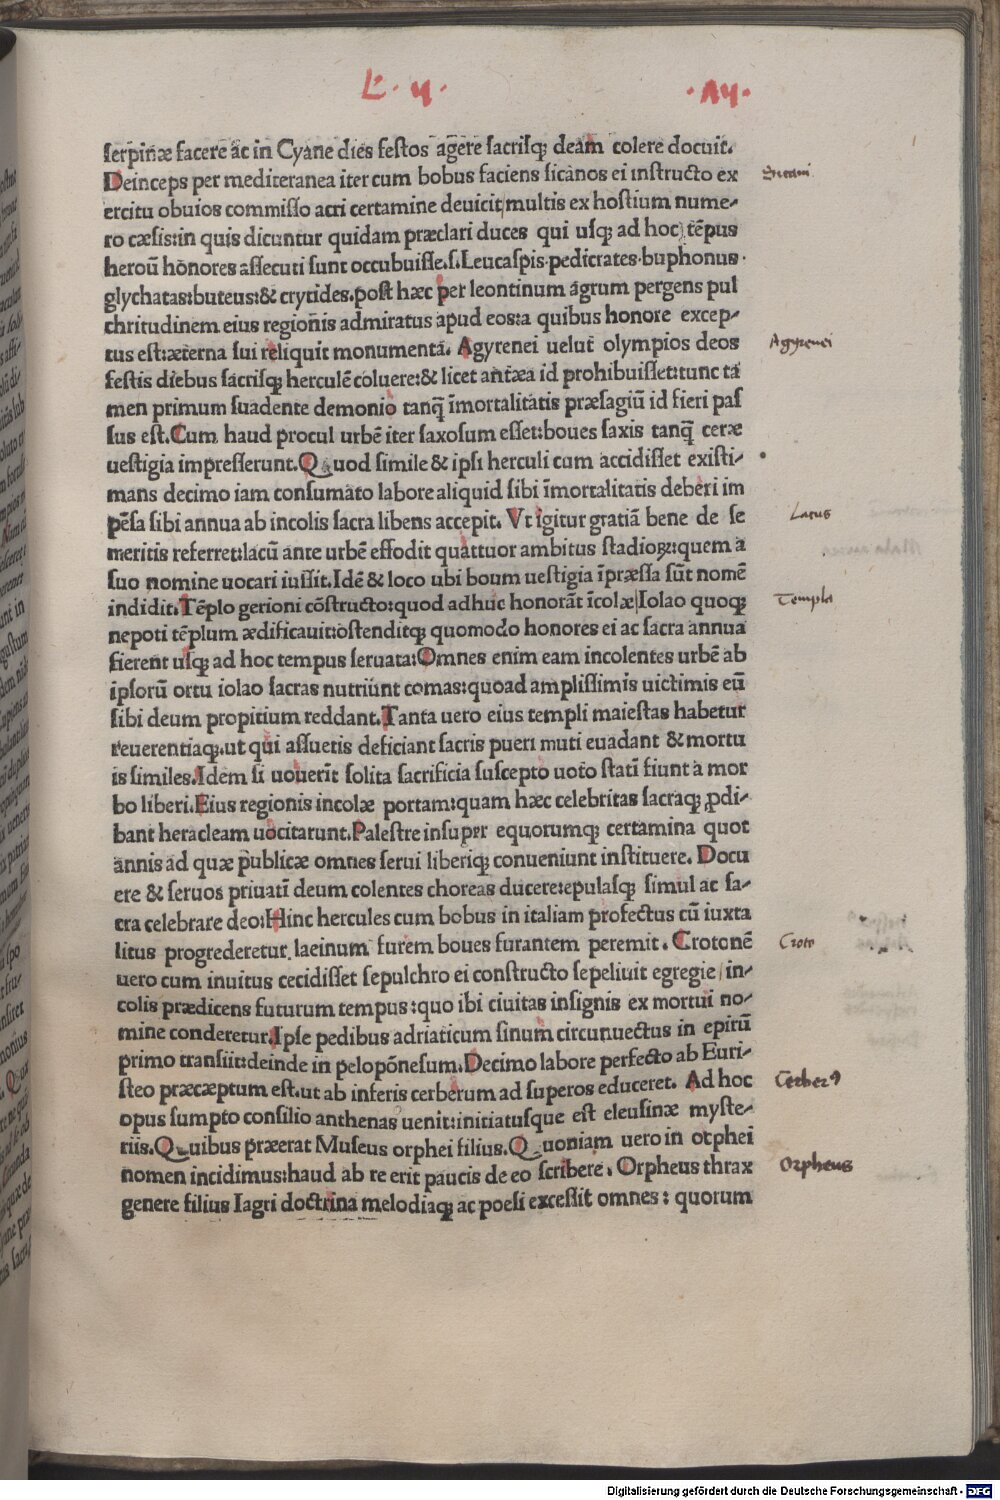 serpinæ facere ac in Cyane dies festos agere sacrisq; deam colere docuit.
Deinceps per mediteranea iter cum bobus faciens sicanos ei instructo ex
ercitu obuios commisso acri certamine deuicit multis ex hostium nume-
ro cæsis:in quis dicuntur quidam præclari duces qui usq; ad hoc tēpus
heroū honores assecuti sunt occubuisse.s.Leucaspis.pedicrates.buphonus.
glychatas:buteus:& crytides.post hæc per leontinum agrum pergens pul
chritudinem eius regionis admiratus apud eos:a quibus honore excep-
tus est:æterna sui reliquit monumenta. Agyrenei uelut olympios deos
festis diebus sacrisq; herculē coluere:& licet antæa id prohibuisset:tunc ta
men primum suadente demonio tanq̄ īmortalitatis præsagiū id fieri pas
sus est.Cum haud procul urbē iter saxosum esset:boues saxis tanq̄ ceræ
uestigia impresserunt.Quod simile & ipsi herculi cum accidisset existi-
mans decimo iam consumato labore aliquid sibi īmortalitatis deberi im
pēsa sibi annua ab incolis sacra libens accepit. Vt igitur gratiā bene de se
meritis referret:lacū ante urbē effodit quattuor ambitus stadioꝝ:quem a
suo nomine uocari iussit.Idē & loco ubi boum uestigia īpræssa sūt nomē
indidit.Tēplo gerioni cōstructo:quod adhuc honorāt īcolæ Iolao quoq;
nepoti tēplum ædificauit:ostenditq; quomodo honores ei ac sacra annua
fierent usq; ad hoc tempus seruata:Omnes enim eam incolentes urbē ab
ipsorū ortu iolao sacras nutriunt comas:quoad amplissimis uictimis eū
sibi deum propitium reddant.Tanta uero eius templi maiestas habetur
reuerentiaq.ut qui assuetis deficiant sacris pueri muti euadant & mortu
is similes.Idem si uouerīt solita sacrificia suscepto uoto statī fiunt a mor
bo liberi.Eius regionis incolæ portam:quam hæc celebritas sacraq; ꝓdi-
bant heracleam uocitarunt.Palestre insuper equorumq; certamina quot
annis ad quæ publicæ omnes serui liberiq; conueniunt instituere. Docu
ere & seruos priuatī deum colentes choreas ducere:epulasq; simul ac sa-
cra celebrare deo:Hinc hercules cum bobus in italiam profectus cū iuxta
litus progrederetur laeinum furem boues furantem peremit. Crotonē
uero cum inuitus cecidisset sepulchro ei constructo sepeliuit egregie in-
colis prædicens futurum tempus:quo ibi ciuitas insignis ex mortui no-
mine conderetur.Ipse pedibus adriaticum sinum circunuectus in epirū
primo transiit:deinde in pelopōnesum.Decimo labore perfecto ab Euri-
steo præcæptum est.ut ab inferis cerberum ad superos educeret. Ad hoc
opus sumpto consilio anthenas uenit:initiatusque est eleusinæ myste-
riis.Quibus præerat Museus orphei filius.Quoniam uero in orphei
nomen incidimus:haud ab re erit paucis de eo scribere. Orpheus thrax
genere filius Iagri doctrina melodiaq; ac poesi excessit omnes: quorum
Sicani
Agyrenei
Lacus
Templa
Croto
Cerber9
Orpheus
Digitalisierung gefördert durch die Deutsche Forschungsgemeinschaft - DFG